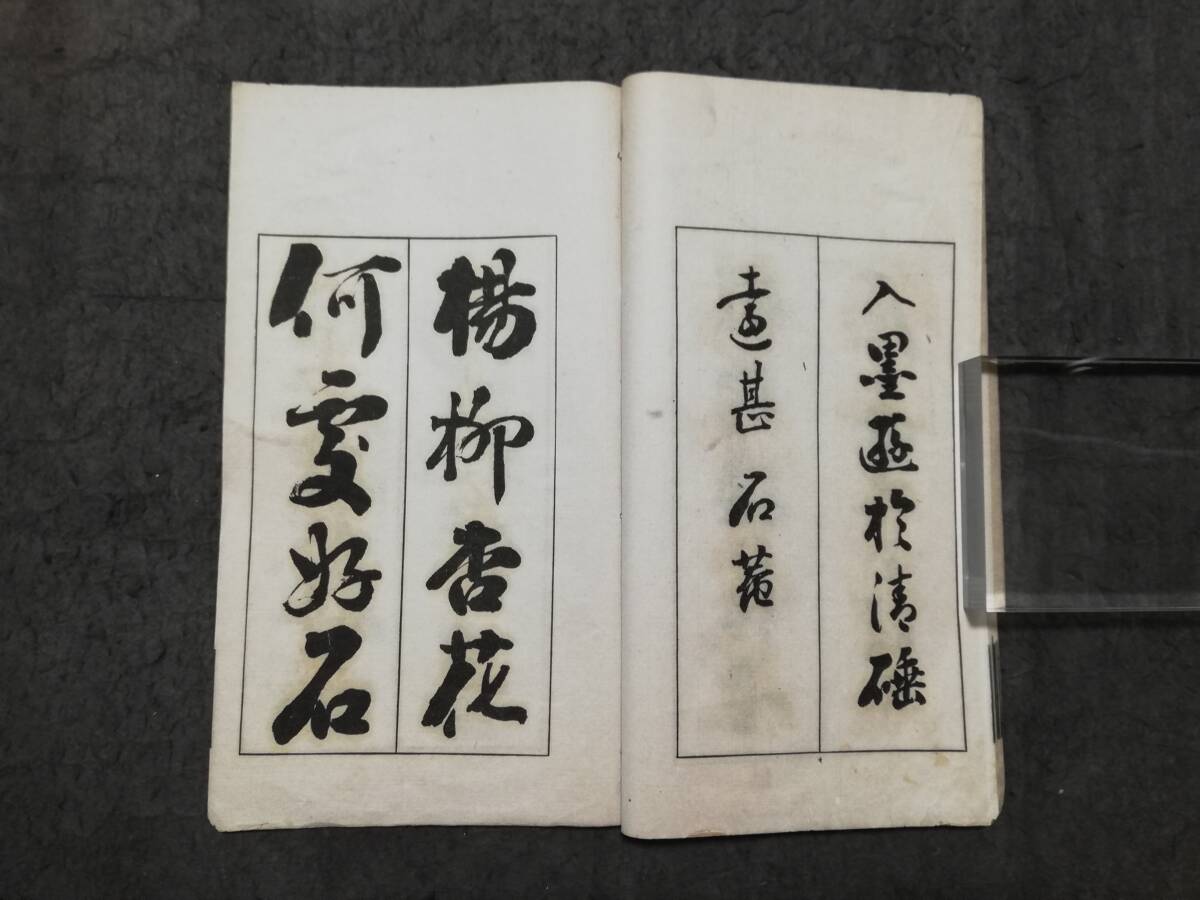 入墨遜於清硾
遠甚 石菴
楊柳杏花
何處好石